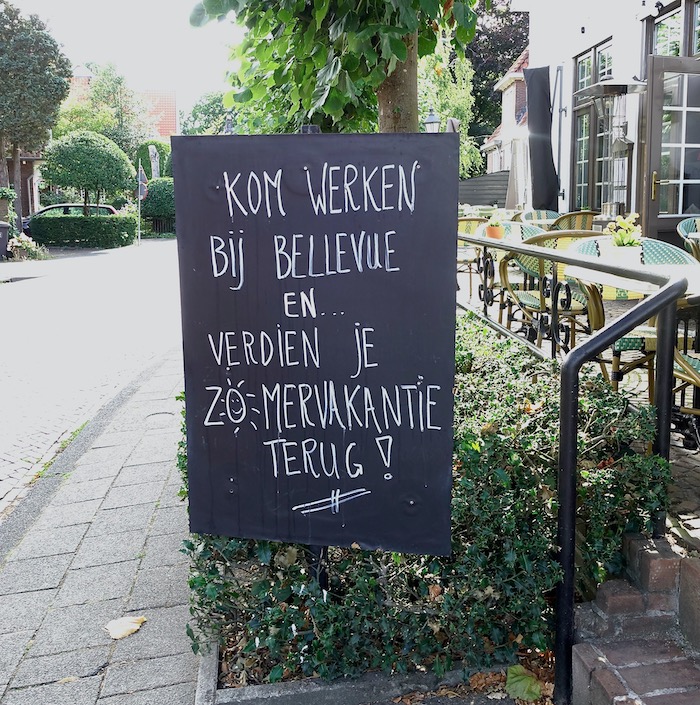 KOM WERKEN
BIJ BELLEVUE
EN...
VERDIEN JE
ZOMERVAKANTIE
TERUG!